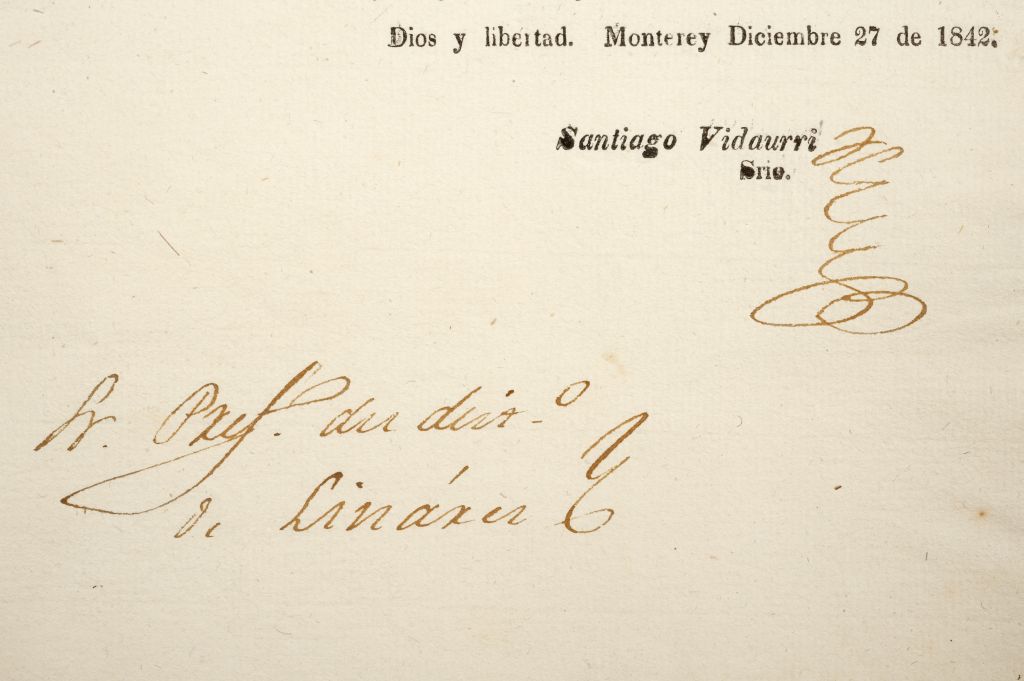 Dios y libertad. Monterey Diciembre 27 de 1842.
Santiago Vidaurri
Srio.
Sr. Pref. del dist.o
de Linares